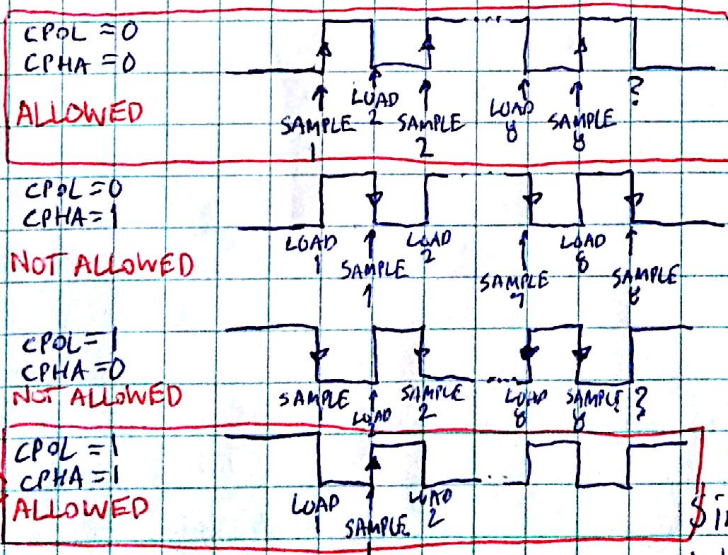 CPOL = 0
CPHA = 0
ALLOWED
SAMPLE 1
LOAD 2
SAMPLE 2
LOAD 8
SAMPLE 8
?
CPOL = 0
CPHA = 1
NOT ALLOWED
LOAD 1
SAMPLE 1
LOAD 2
SAMPLE 7
LOAD 8
SAMPLE 8
CPOL = 1
CPHA = 0
NOT ALLOWED
SAMPLE
LOAD
SAMPLE 2
LOAD 8
SAMPLE 8
?
CPOL = 1
CPHA = 1
ALLOWED
LOAD 1
SAMPLE
LOAD 2